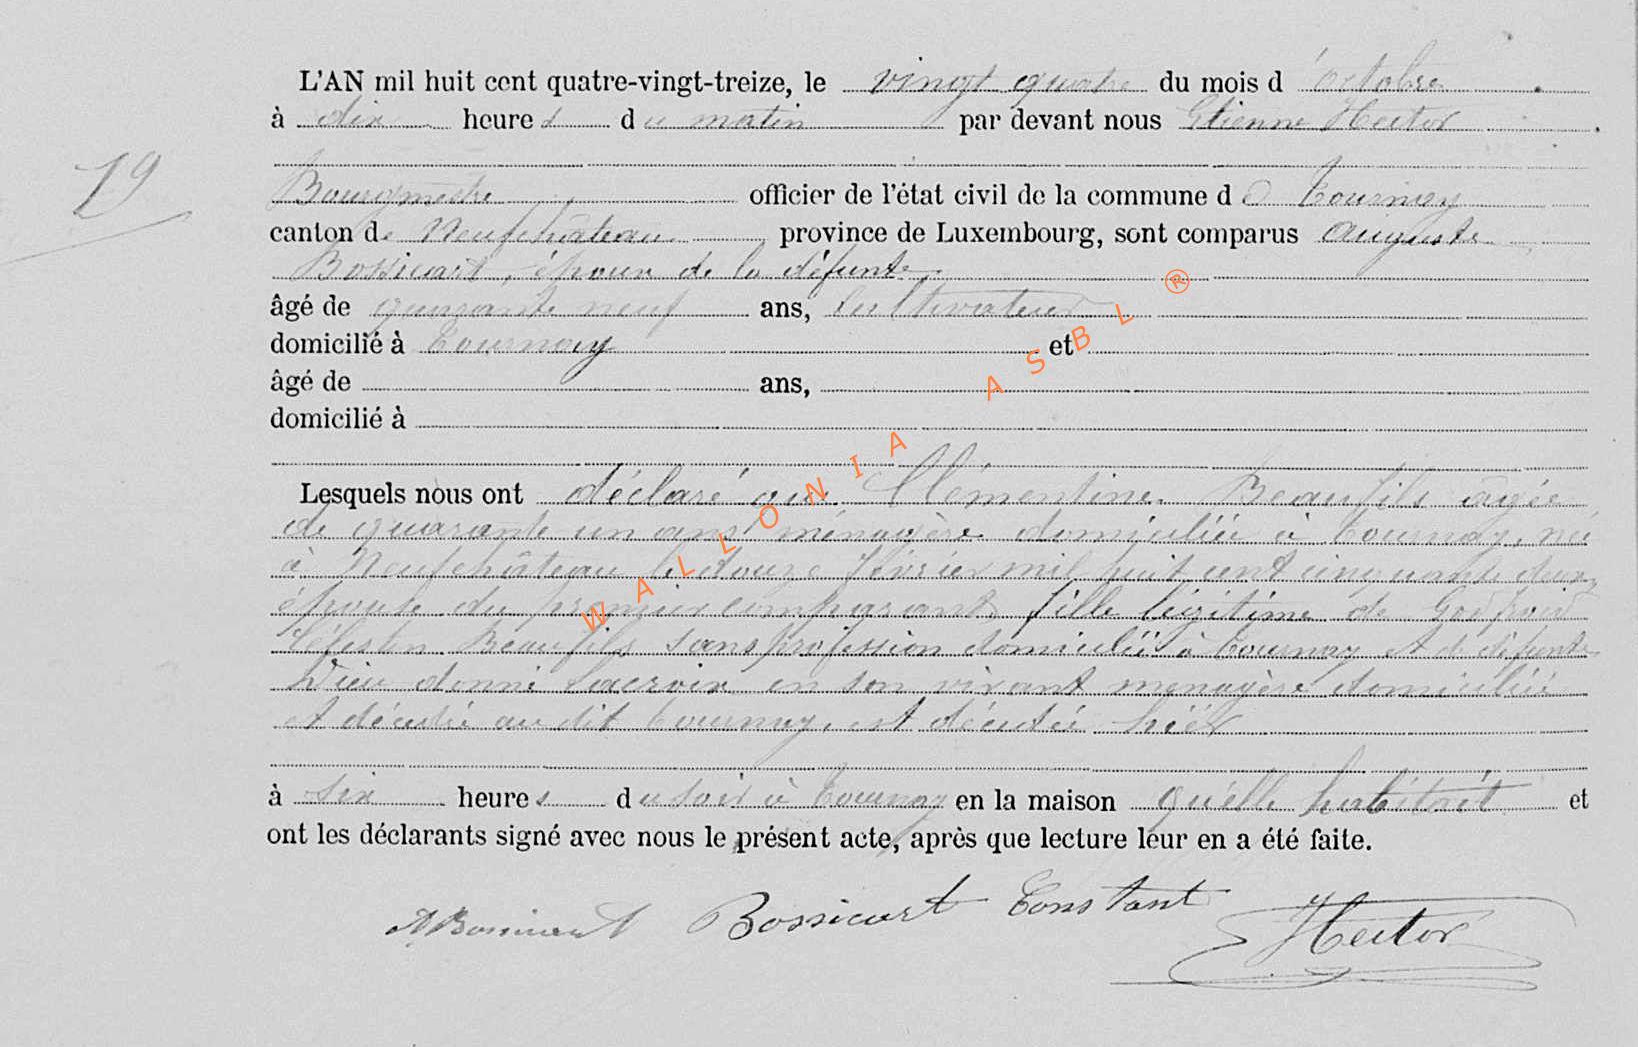 19
L'AN mil huit cent quatre-vingt-treize, le vingt quatre du mois d'octobre
à dix heures du matin par devant nous Etienne Hector
Bourgmestre officier de l'état civil de la commune de Tournay
canton de Neufchâteau province de Luxembourg, sont comparus Auguste
Bossicart, époux de la défunte,
âgé de quarante neuf ans, cultivateur
domicilié à Tournay et
âgé de ans,
domicilié à
Lesquels nous ont déclaré que Clémentine Beaufils âgée
de quarante un ans ménagère domiciliée à Tournay, née
à Neufchâteau le douze février mil huit cent cinquante deux
épouse du premier comparant, fille légitime de Godfroid
Célestin Beaufils sans profession domicilié à Tournay et de défunte
Dieu donné Lacroix en son vivant ménagère domiciliée
et décédée au dit Tournay, est décédée hier
à six heures du soir à Tournay en la maison qu'elle habitait et
ont les déclarants signé avec nous le présent acte, après que lecture leur en a été faite.
A. Bossicart Bossicart Constant E Hector
WALLONIA ASBL ®